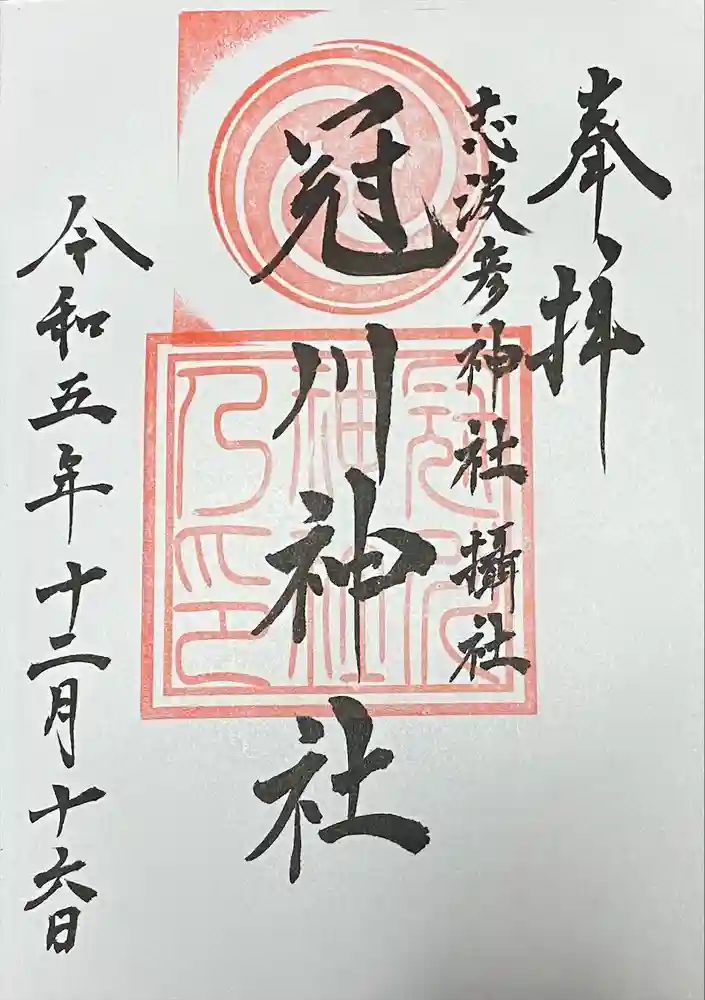 奉拝
志波彦神社 攝社
冠川神社
令和五年十二月十六日
冠川
神社
乃印